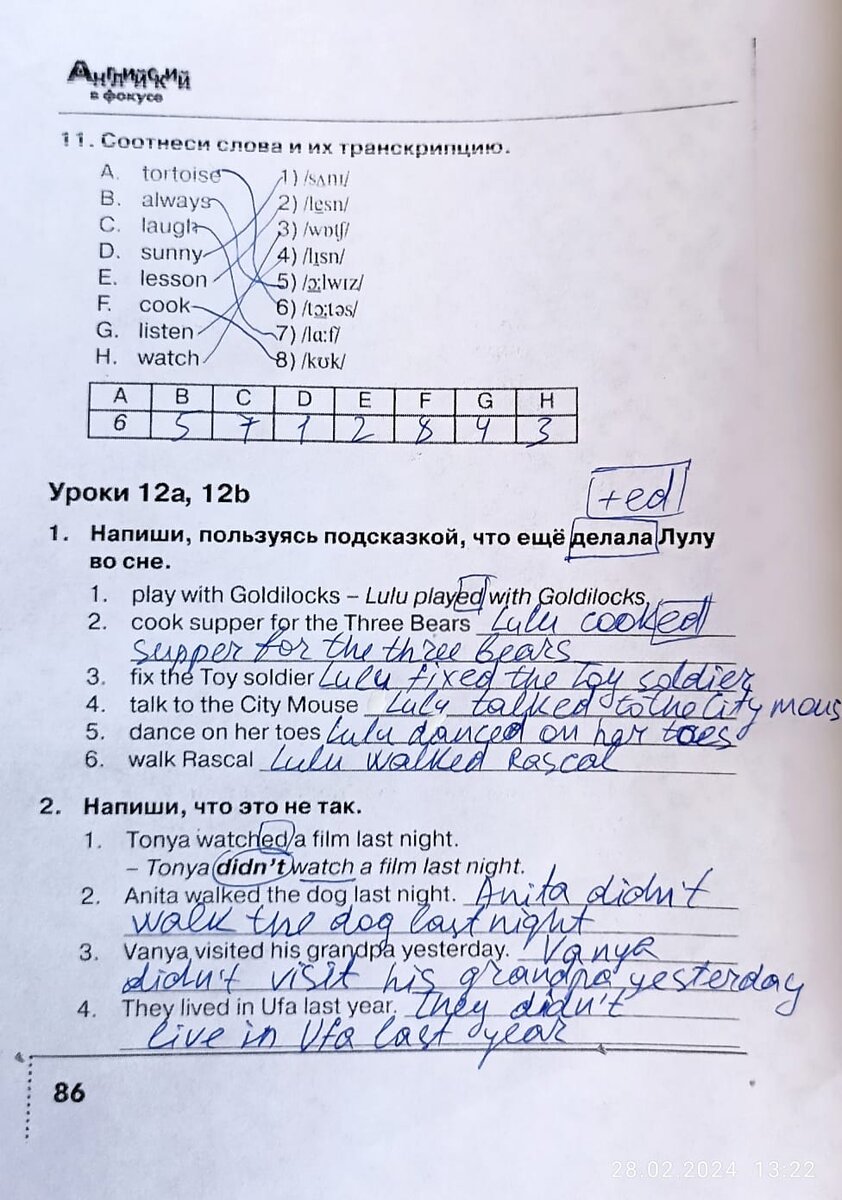 Английский
в фокусе
11. Соотнеси слова и их транскрипцию.
A. tortoise 1) /sʌnɪ/
B. always 2) /lesn/
C. laugh 3) /wɒtʃ/
D. sunny 4) /lɪsn/
E. lesson 5) /ɔ:lwɪz/
F. cook 6) /tɔ:təs/
G. listen 7) /lɑ:f/
H. watch 8) /kʊk/
A B C D E F G H
6 5 7 1 2 8 4 3
Уроки 12a, 12b
+ed
1. Напиши, пользуясь подсказкой, что ещё делала Лулу
во сне.
1. play with Goldilocks – Lulu played with Goldilocks.
2. cook supper for the Three Bears Lulu cooked
supper for the three bears
3. fix the Toy soldier Lulu fixed the toy soldier
4. talk to the City Mouse Luly talked to the City mous
5. dance on her toes Lulu danced on her toes
6. walk Rascal Lulu walked Rascal
2. Напиши, что это не так.
1. Tonya watched a film last night.
– Tonya didn't watch a film last night.
2. Anita walked the dog last night. Anita didn't
walk the dog last night
3. Vanya visited his grandpa yesterday. Vanya
didn't visit his grandpa yesterday
4. They lived in Ufa last year. They didn't
live in Ufa last year
86
28.02.2024 13:22